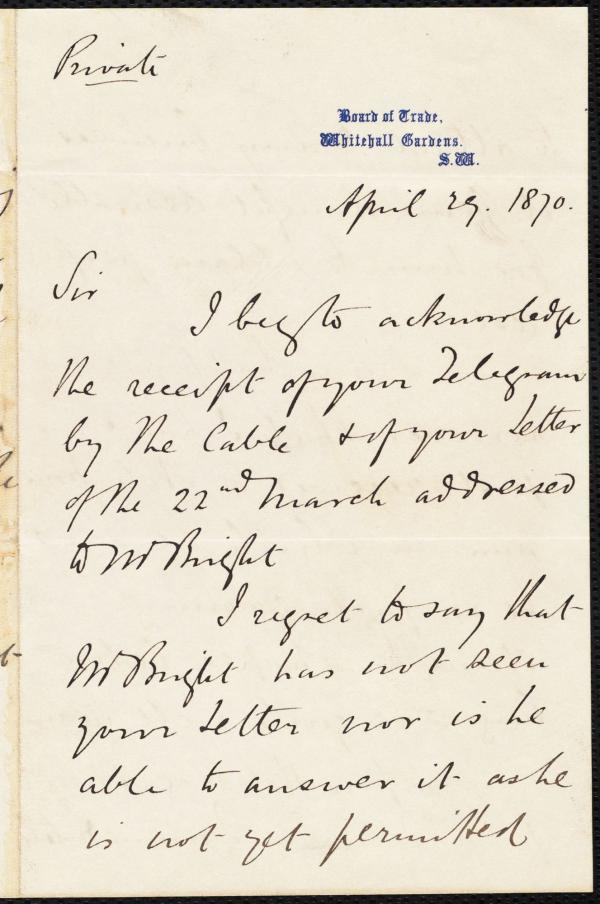 Private
Board of Trade,
Whitehall Gardens.
S.W.
April 29. 1870.
Sir
I beg to acknowledge
the receipt of your Telegram
by the Cable & of your Letter
of the 22nd March addressed
to Mr Bright
I regret to say that
Mr Bright has not seen
your Letter nor is he
able to answer it as he
is not yet permitted